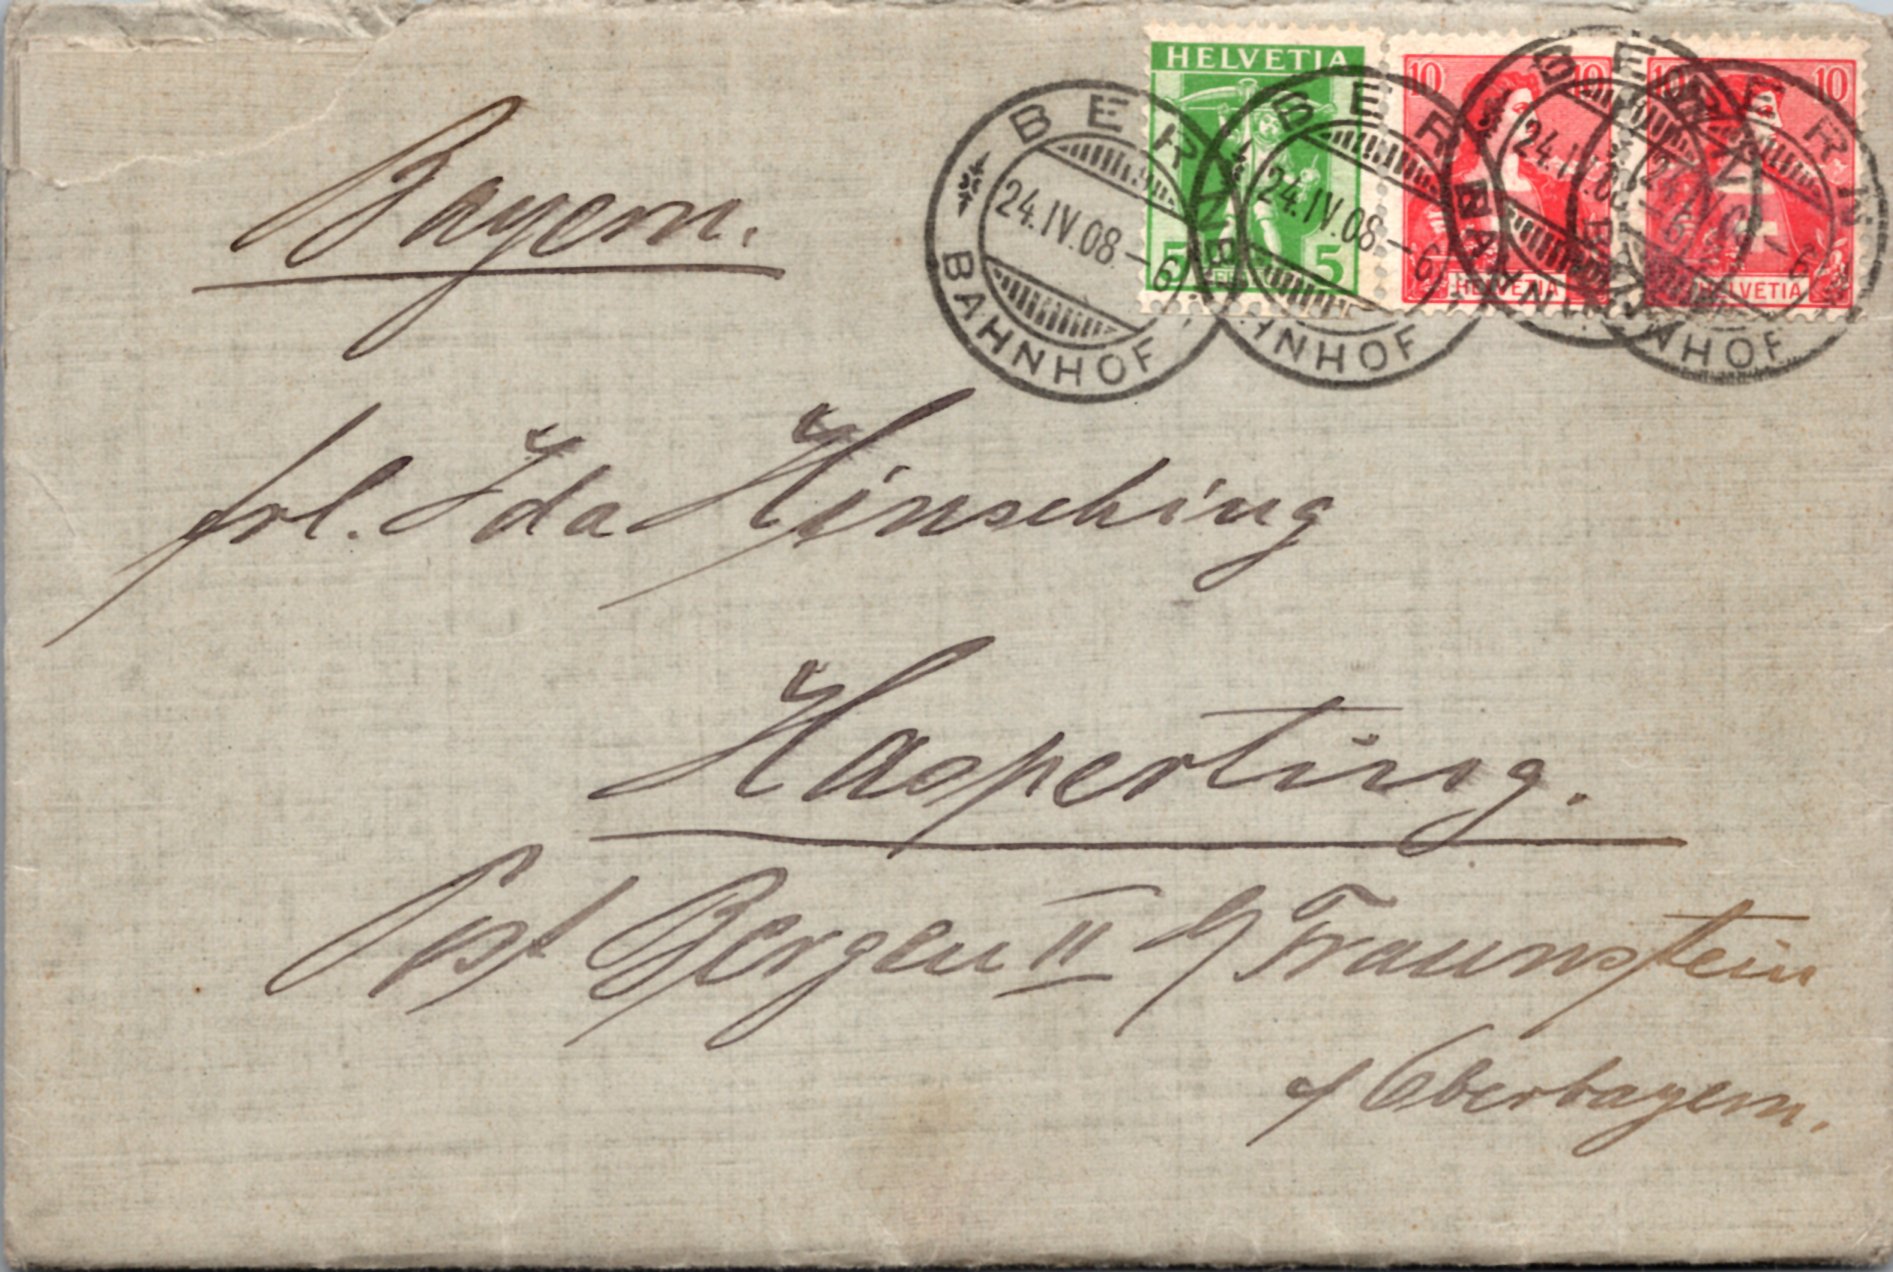 HELVETIA
5 5
10 10
HELVETIA
10 10
HELVETIA
BERN
24.IV.08.-6
BAHNHOF
BERN
24.IV.08.-6
BAHNHOF
BERN
24.IV.08.-6
BAHNHOF
BERN
24.IV.08.-6
BAHNHOF
Bayern.
Frl. Ida Hinsching
Hasperting.
Post Bergen II b/ Traunstein
Oberbayern.